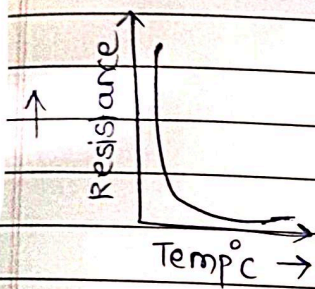 Resistance →
Temp°C →